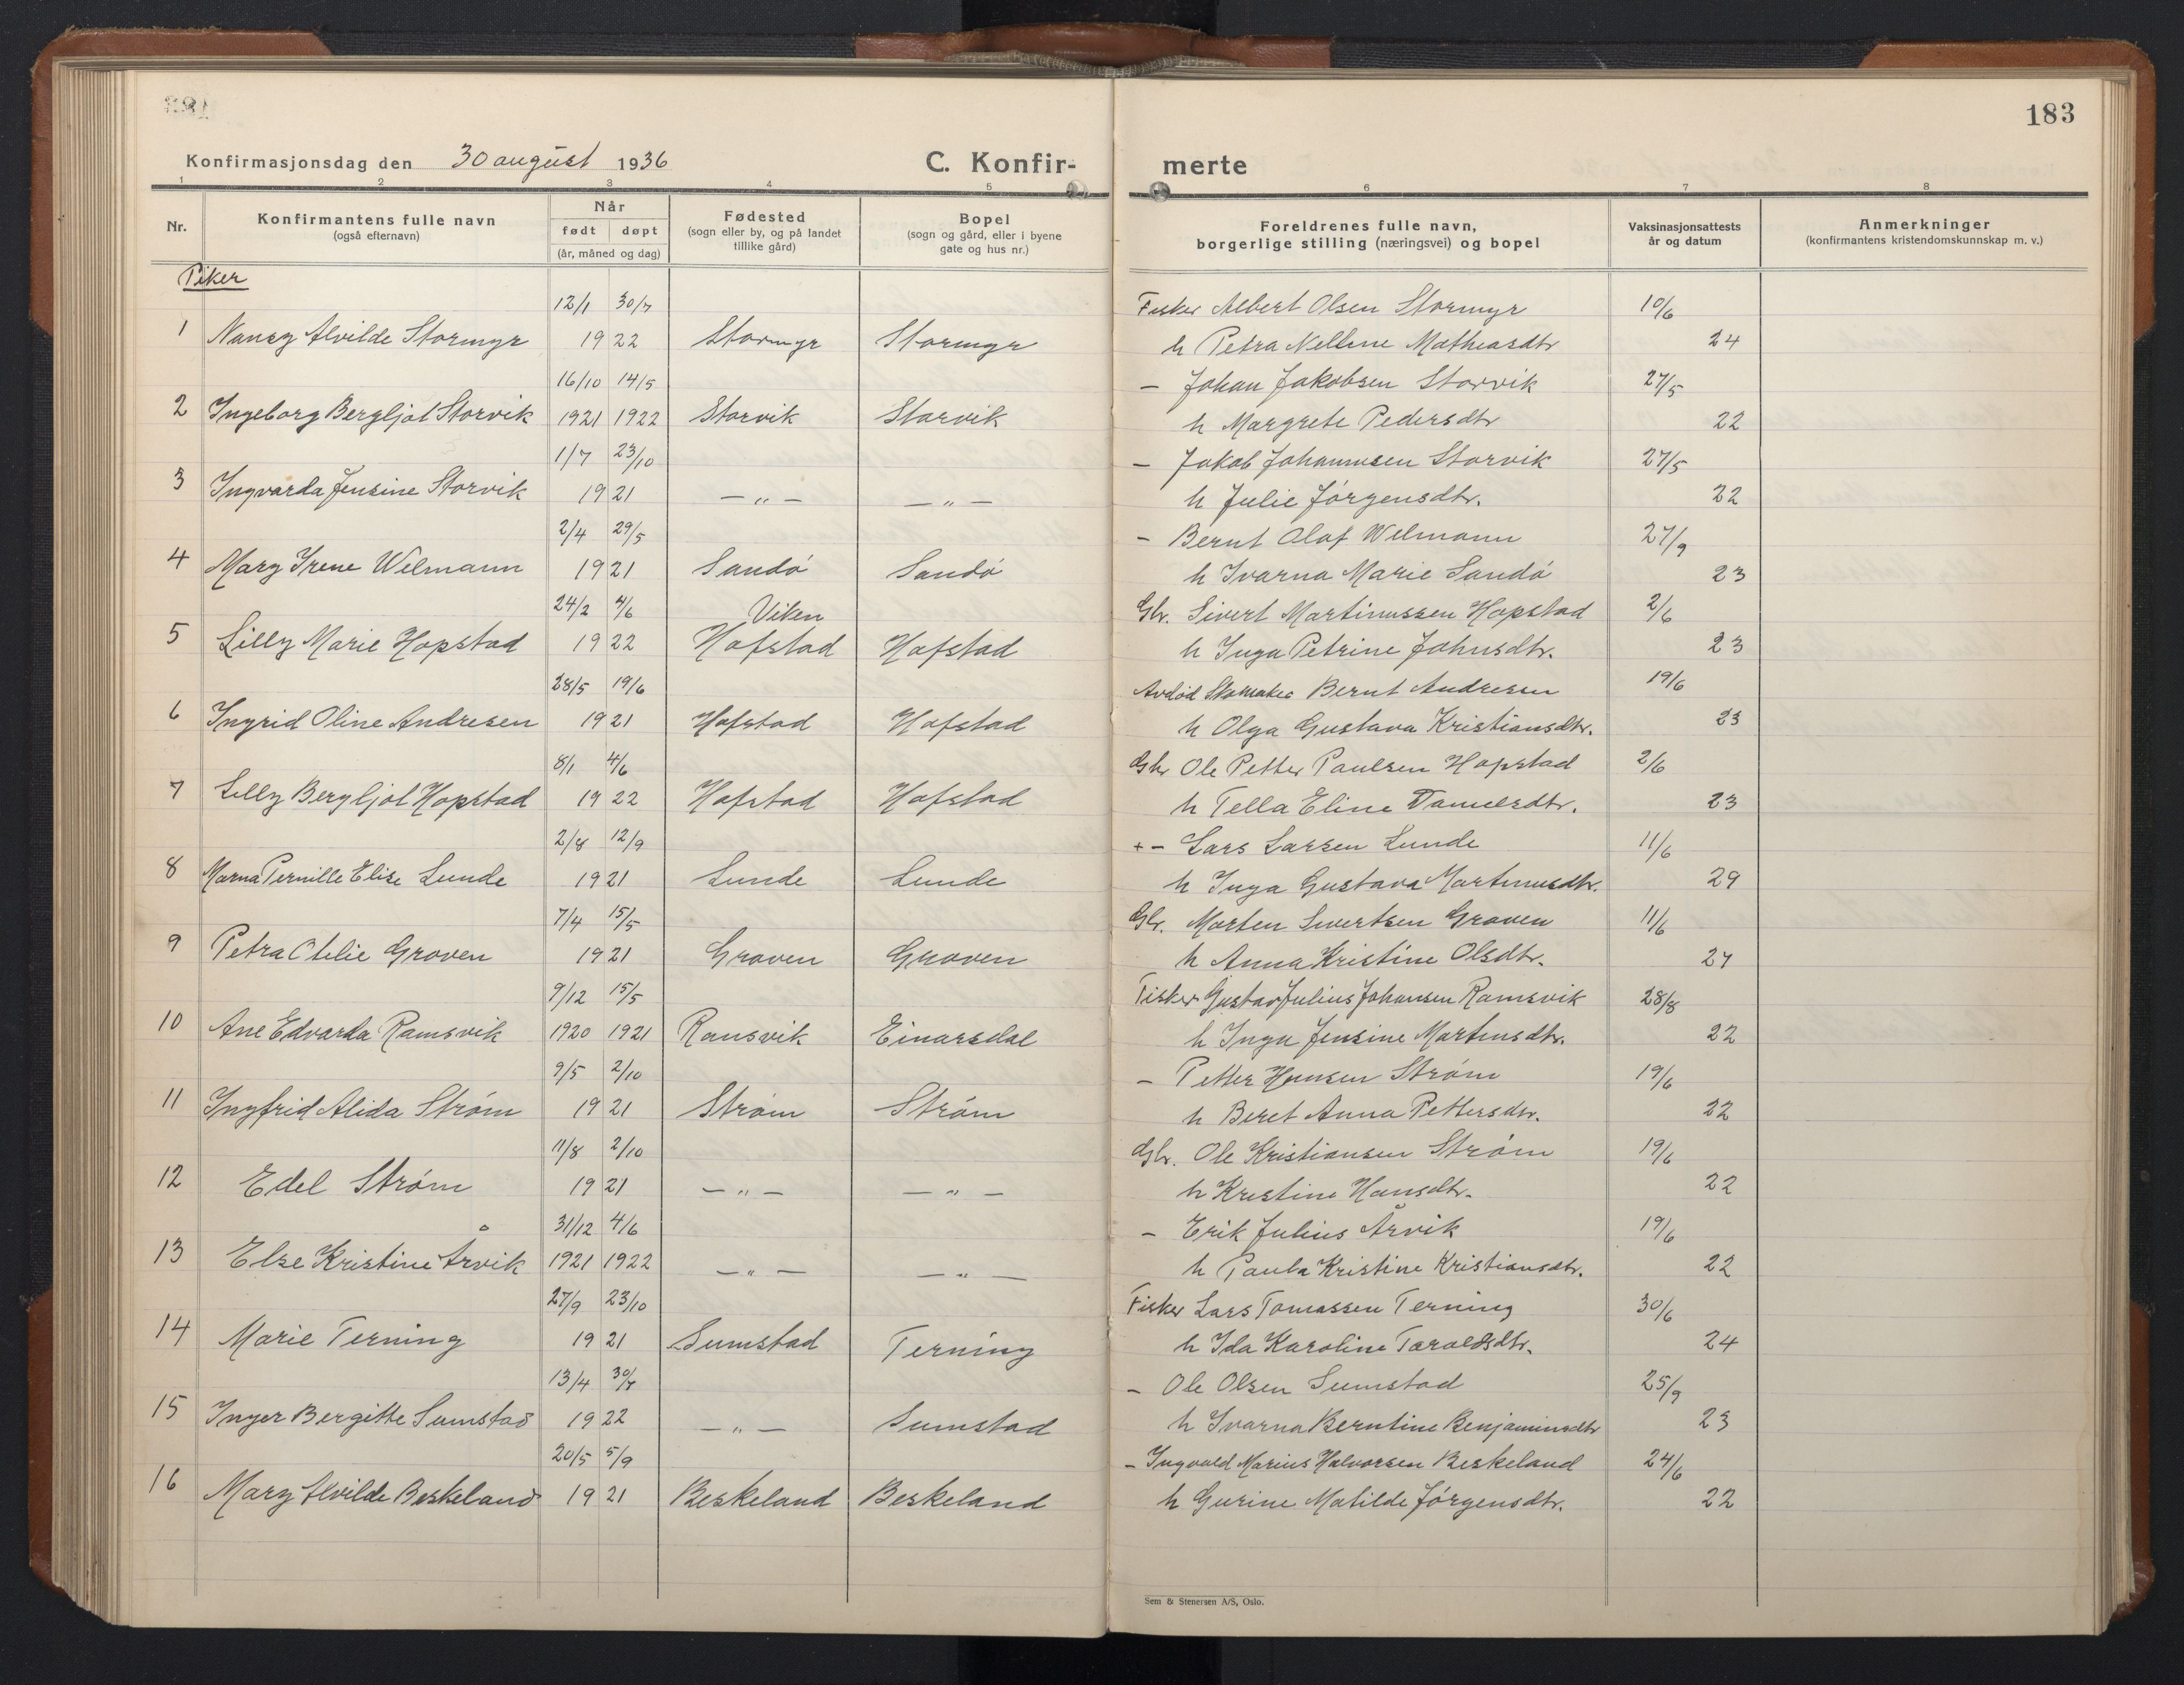 183
Konfirmasjonsdag den 30 august 1936
C. Konfir- merte
1 2 3 4 5 6 7 8
Nr.
Konfirmantens fulle navn
(også efternavn)
Når
født døpt
(år, måned og dag)
Fødested
(sogn eller by, og på landet
tillike gård)
Bopel
(sogn og gård, eller i byene
gate og hus nr.)
Foreldrenes fulle navn,
borgerlige stilling (næringsvei) og bopel
Vaksinasjonsattests
år og datum
Anmerkninger
(konfirmantens kristendomskunnskap m. v.)
Piker
12/1 30/7 Fisker Albert Olsen Stormyr 10/6
1 Nancy Alvilde Stormyr 1922 Stormyr Stormyr h Petra Nelline Mathiasdtr 24
16/10 14/5 – Johan Jakobsen Storvik 27/5
2 Ingeborg Bergljot Storvik 1921 1922 Storvik Storvik h Margrete Pedersdtr 22
1/7 23/10 – Jakob Johannesen Storvik 27/5
3 Ingvarda Jensine Storvik 1921 – " – – " – h Julie Jörgensdtr. 22
2/4 29/5 – Bernt Olaf Welmann 27/9
4 Mary Irene Welmann 1921 Sandö Sandö h Ivarna Marie Sandö 23
24/2 4/6 Viken Gbr. Sivert Martinussen Hopstad 2/6
5 Lilly Marie Hopstad 1922 Hofstad Hofstad h Inga Petrine Johnsdtr. 23
28/5 19/6 Avdöd Skomaker Bernt Andresen 19/6
6 Ingrid Oline Andresen 1921 Hofstad Hofstad h Olga Gustava Kristiansdtr. 23
8/1 4/6 Gbr Ole Petter Paulsen Hopstad 2/6
7 Lilly Bergljot Hopstad 1922 Hofstad Hofstad h Tella Eline Danielsdtr. 23
2/8 12/9 + – Lars Larsen Lunde 11/6
8 Marna Pernille Elise Lunde 1921 Lunde Lunde h Inga Gustava Martinusdtr. 29
7/4 15/5 Gbr. Morten Sivertsen Groven 11/6
9 Petra Otelie Groven 1921 Groven Groven h Anna Kristine Olsdtr. 27
9/12 15/5 Fisker Gustav Julius Johansen Ramsvik 28/8
10 Ane Edvarda Ramsvik 1920 1921 Ramsvik Einarsdal h Inga Jensine Martinsdtr. 22
9/5 2/10 – Petter Hansen Ström 19/6
11 Ingfrid Alida Ström 1921 Ström Ström h Beret Anna Pettersdtr. 22
11/8 2/10 Gbr. Ole Kristiansen Ström 19/6
12 Edel Ström 1921 – " – – " – h Kristine Hansdtr. 22
31/12 4/6 – Erik Julius Årvik 19/6
13 Else Kristine Årvik 1921 1922 – " – – " – h Paula Kristine Kristiansdtr. 22
27/9 23/10 Fisker Lars Tomassen Terning 30/6
14 Marie Terning 1921 Sumstad Terning h Ida Karoline Taraldsdtr. 24
13/4 30/7 – Ole Olsen Sumstad 25/9
15 Inger Bergitte Sumstad 1922 – " – Sumstad h Ivarna Berntine Benjaminsdtr 23
20/5 5/9 – Ingvald Marius Halvorsen Beskeland 24/6
16 Mary Alvilde Beskeland 1921 Beskeland Beskeland h Gurine Matilde Jörgensdtr. 22
Sem & Stenersen A/S, Oslo.